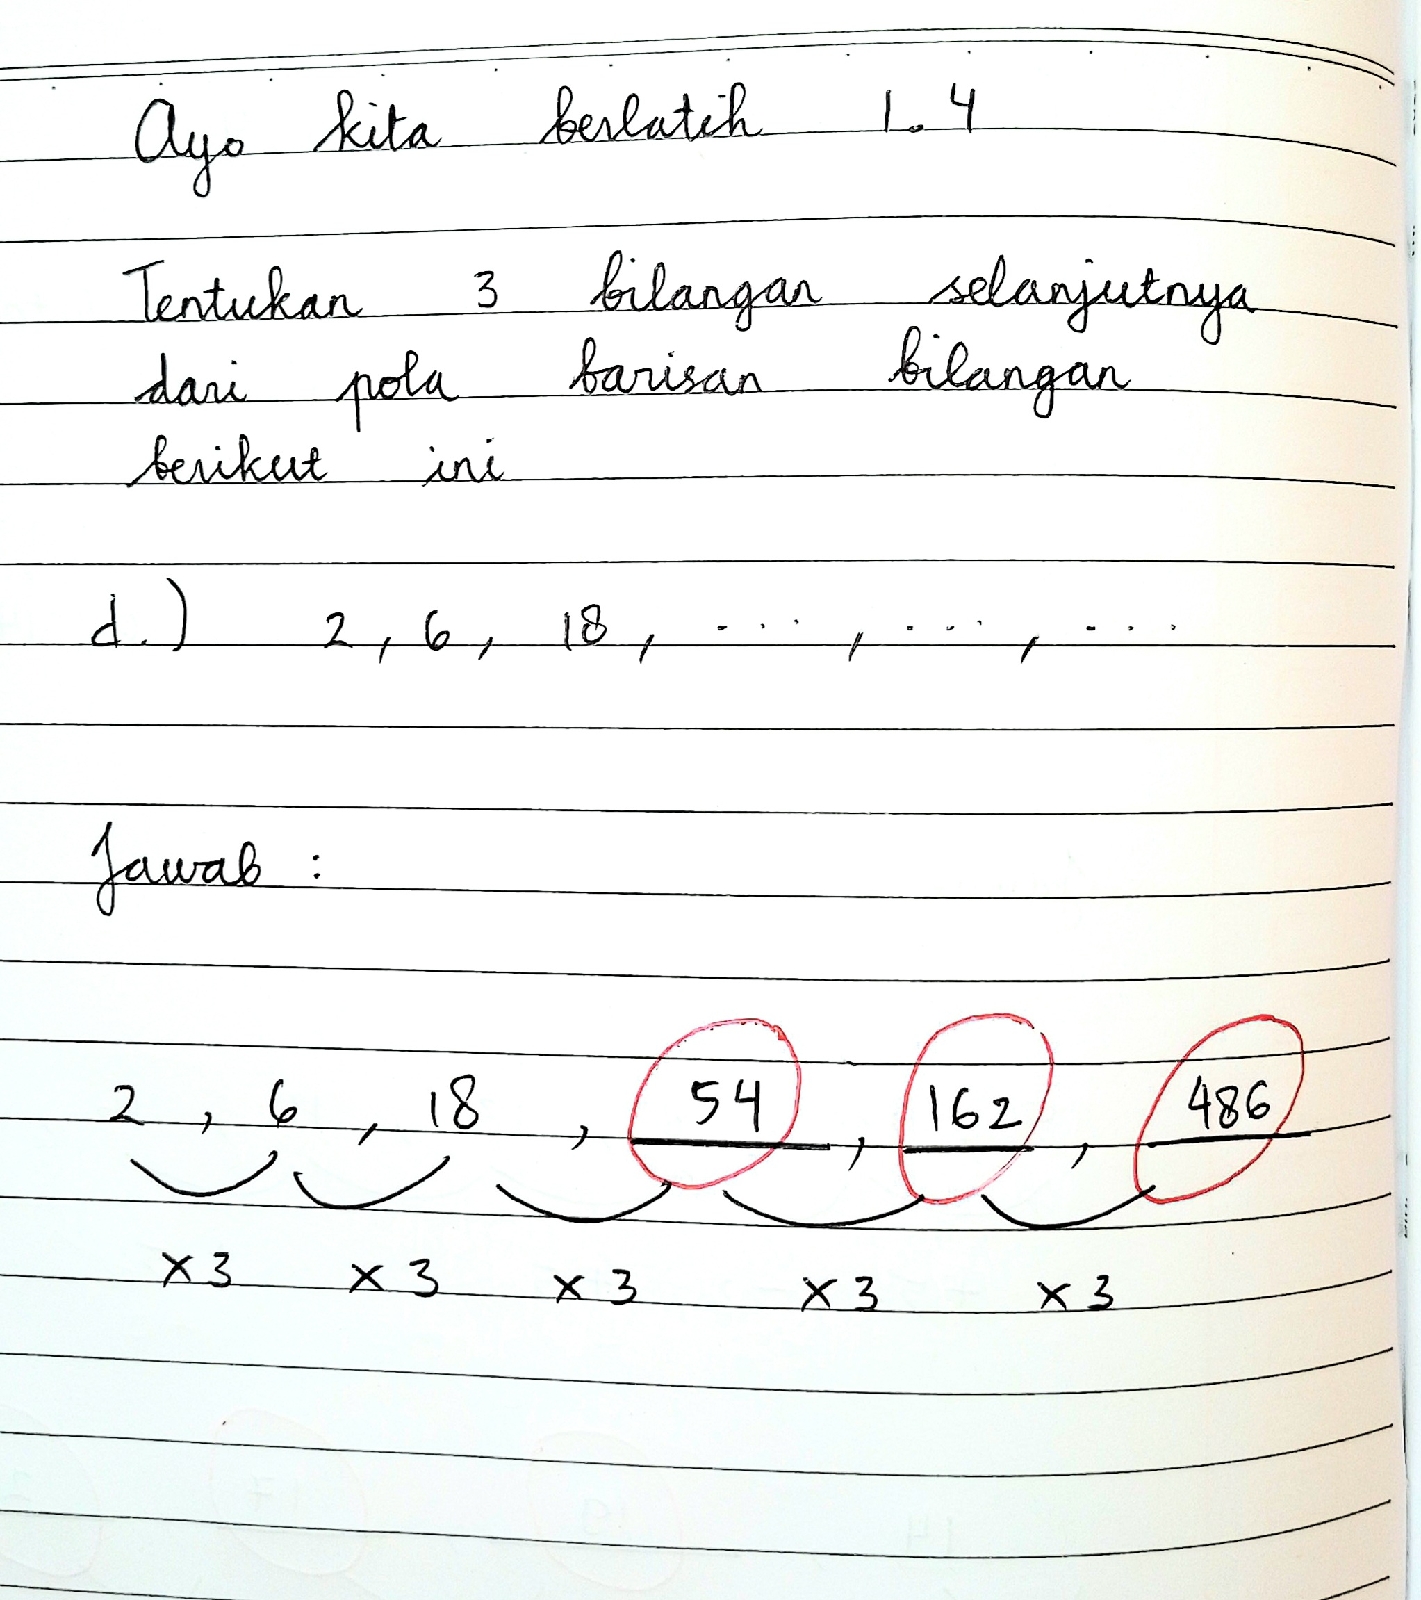 Ayo kita berlatih 1.4
Tentukan 3 bilangan selanjutnya
dari pola barisan bilangan
berikut ini
d.) 2, 6, 18, ..., ..., ...
Jawab :
2, 6, 18, 54, 162, 486
x3 x3 x3 x3 x3